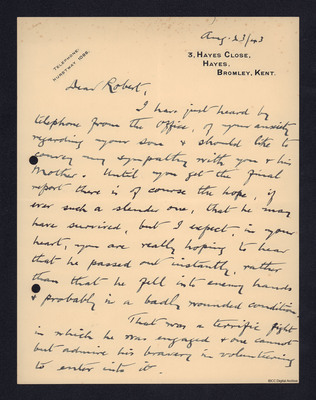 Aug. 23/43
TELEPHONE:
HURSTWAY 1086.
3, HAYES CLOSE,
HAYES.
BROMLEY, KENT.
Dear Robert,
I have just heard by
telephone from the Office, of your anxiety
regarding your son & should like to
convey my sympathy with you & his
Mother. Until you get the final
report there is of course the hope, if
ever such a slender one, that he may
have survived, but I expect, in your
heart, you are really hoping to hear
that he passed out instantly, rather
than that he fell into enemy hands
& probably in a badly wounded condition.
That was a terrific fight
in which he was engaged & one cannot
but admire his bravery in volunteering
to enter into it.
IBCC Digital Archive